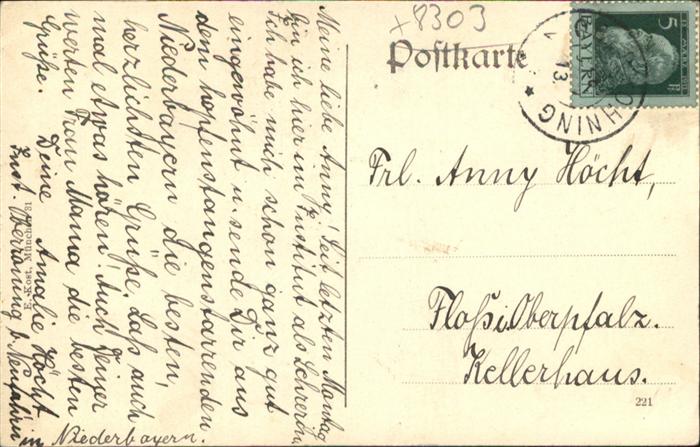 + 8303
Postkarte
BAYERN
5
Pf
OHNING
13.
Frl. Anny Höcht,
Floß i. Oberpfalz.
Kellerhaus.
221
Meine liebe Anny! Seit letzten Montag
bin ich hier im Institut als Lehrerin.
Ich habe mich schon ganz gut
eingewöhnt u. sende Dir aus
dem hopfenstangenstarrenden
Niederbayern die besten,
herzlichsten Grüße. Laß auch
mal etwas hören! Auch Deiner
werten Frau Mama die besten
Grüße. Deine Amalie Höcht
Inst. b. Neufahrn
in Niederbayern.
E. Rost, München 31